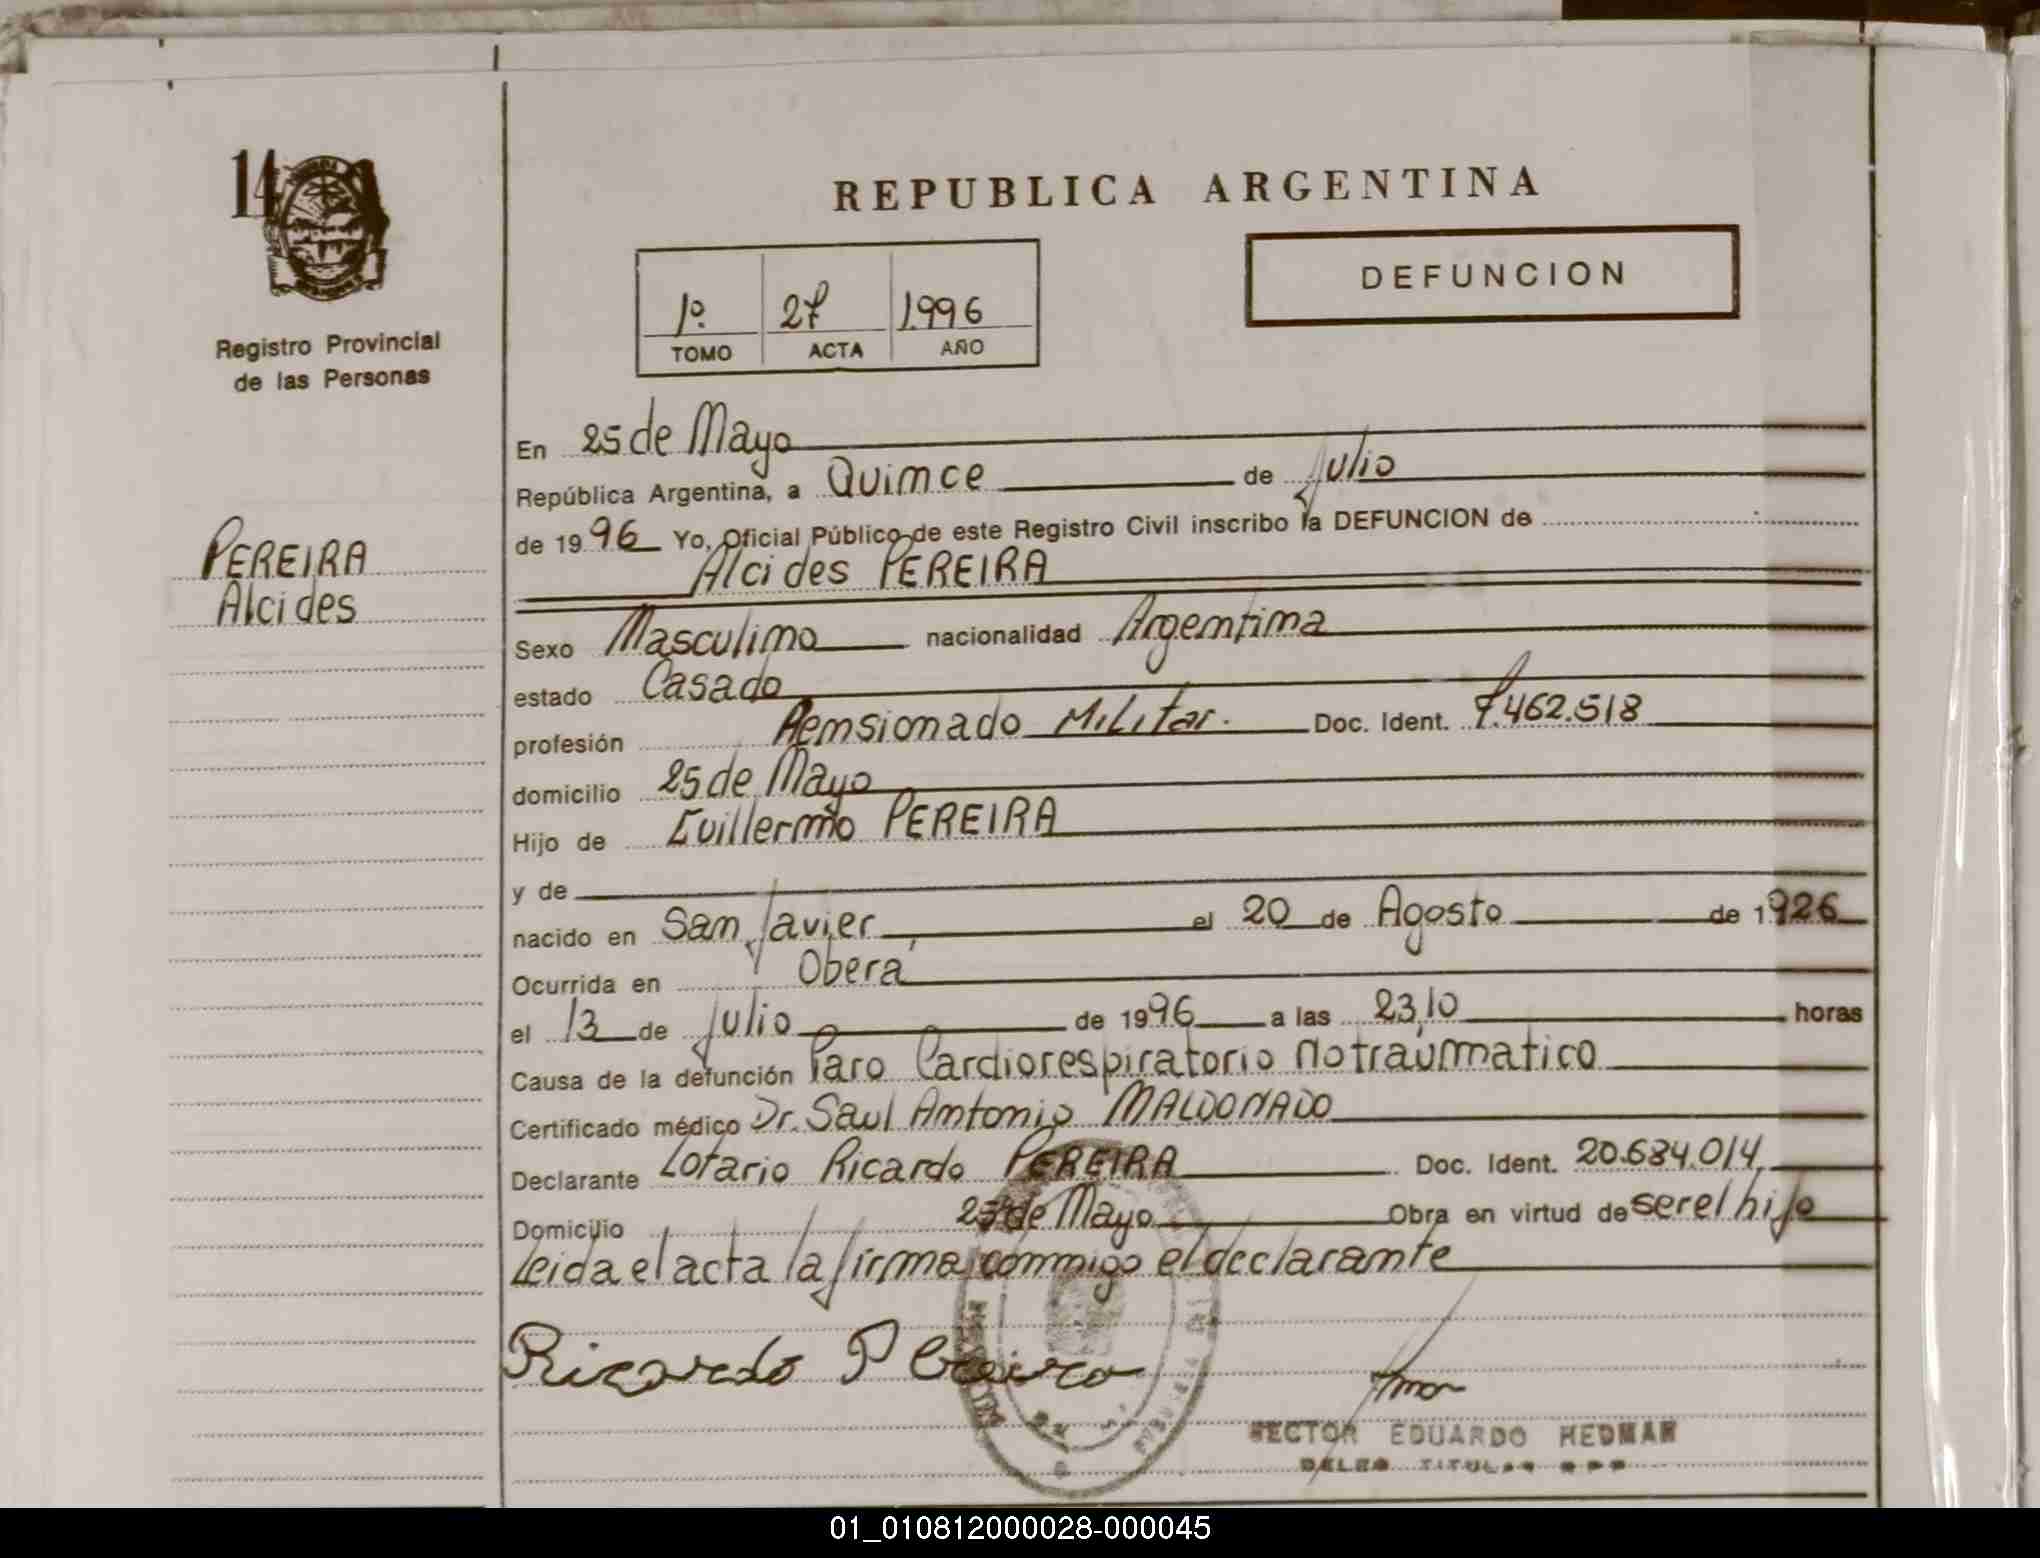 14
Registro Provincial
de las Personas
PEREIRA
Alcides
REPUBLICA ARGENTINA
DEFUNCION
1º 27 1.996
TOMO ACTA AÑO
En 25 de Mayo
República Argentina, a Quince de Julio
de 1996 Yo, Oficial Público de este Registro Civil inscribo la DEFUNCION de
Alcides PEREIRA
Sexo Masculino nacionalidad Argentina
estado Casado
profesión Pensionado Militar. Doc. Ident. 7.462.518
domicilio 25 de Mayo
Hijo de Guillermo PEREIRA
y de
nacido en San Javier el 20 de Agosto de 1926
Ocurrida en Oberá
el 13 de Julio de 1996 a las 23,10 horas
Causa de la defunción Paro Cardiorespiratorio no traumatico
Certificado médico Dr. Saul Antonio MALDONADO
Declarante Lotario Ricardo PEREIRA Doc. Ident. 20.684.014
Domicilio 25 de Mayo Obra en virtud de ser el hijo
Leida el acta la firma conmigo el declarante
Ricardo Pereira
HECTOR EDUARDO HEDMAN
01_010812000028-000045